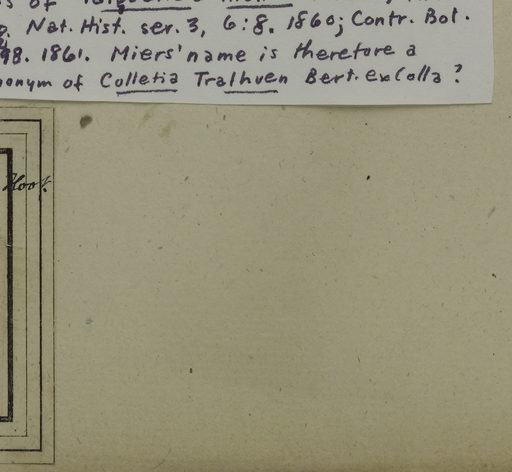 of
Nat. Hist. ser. 3, 6:8. 1860; Contr. Bot.
98. 1861. Miers' name is therefore a
onym of Colletia Tralhuen Bert. ex Colla ?
Hook.